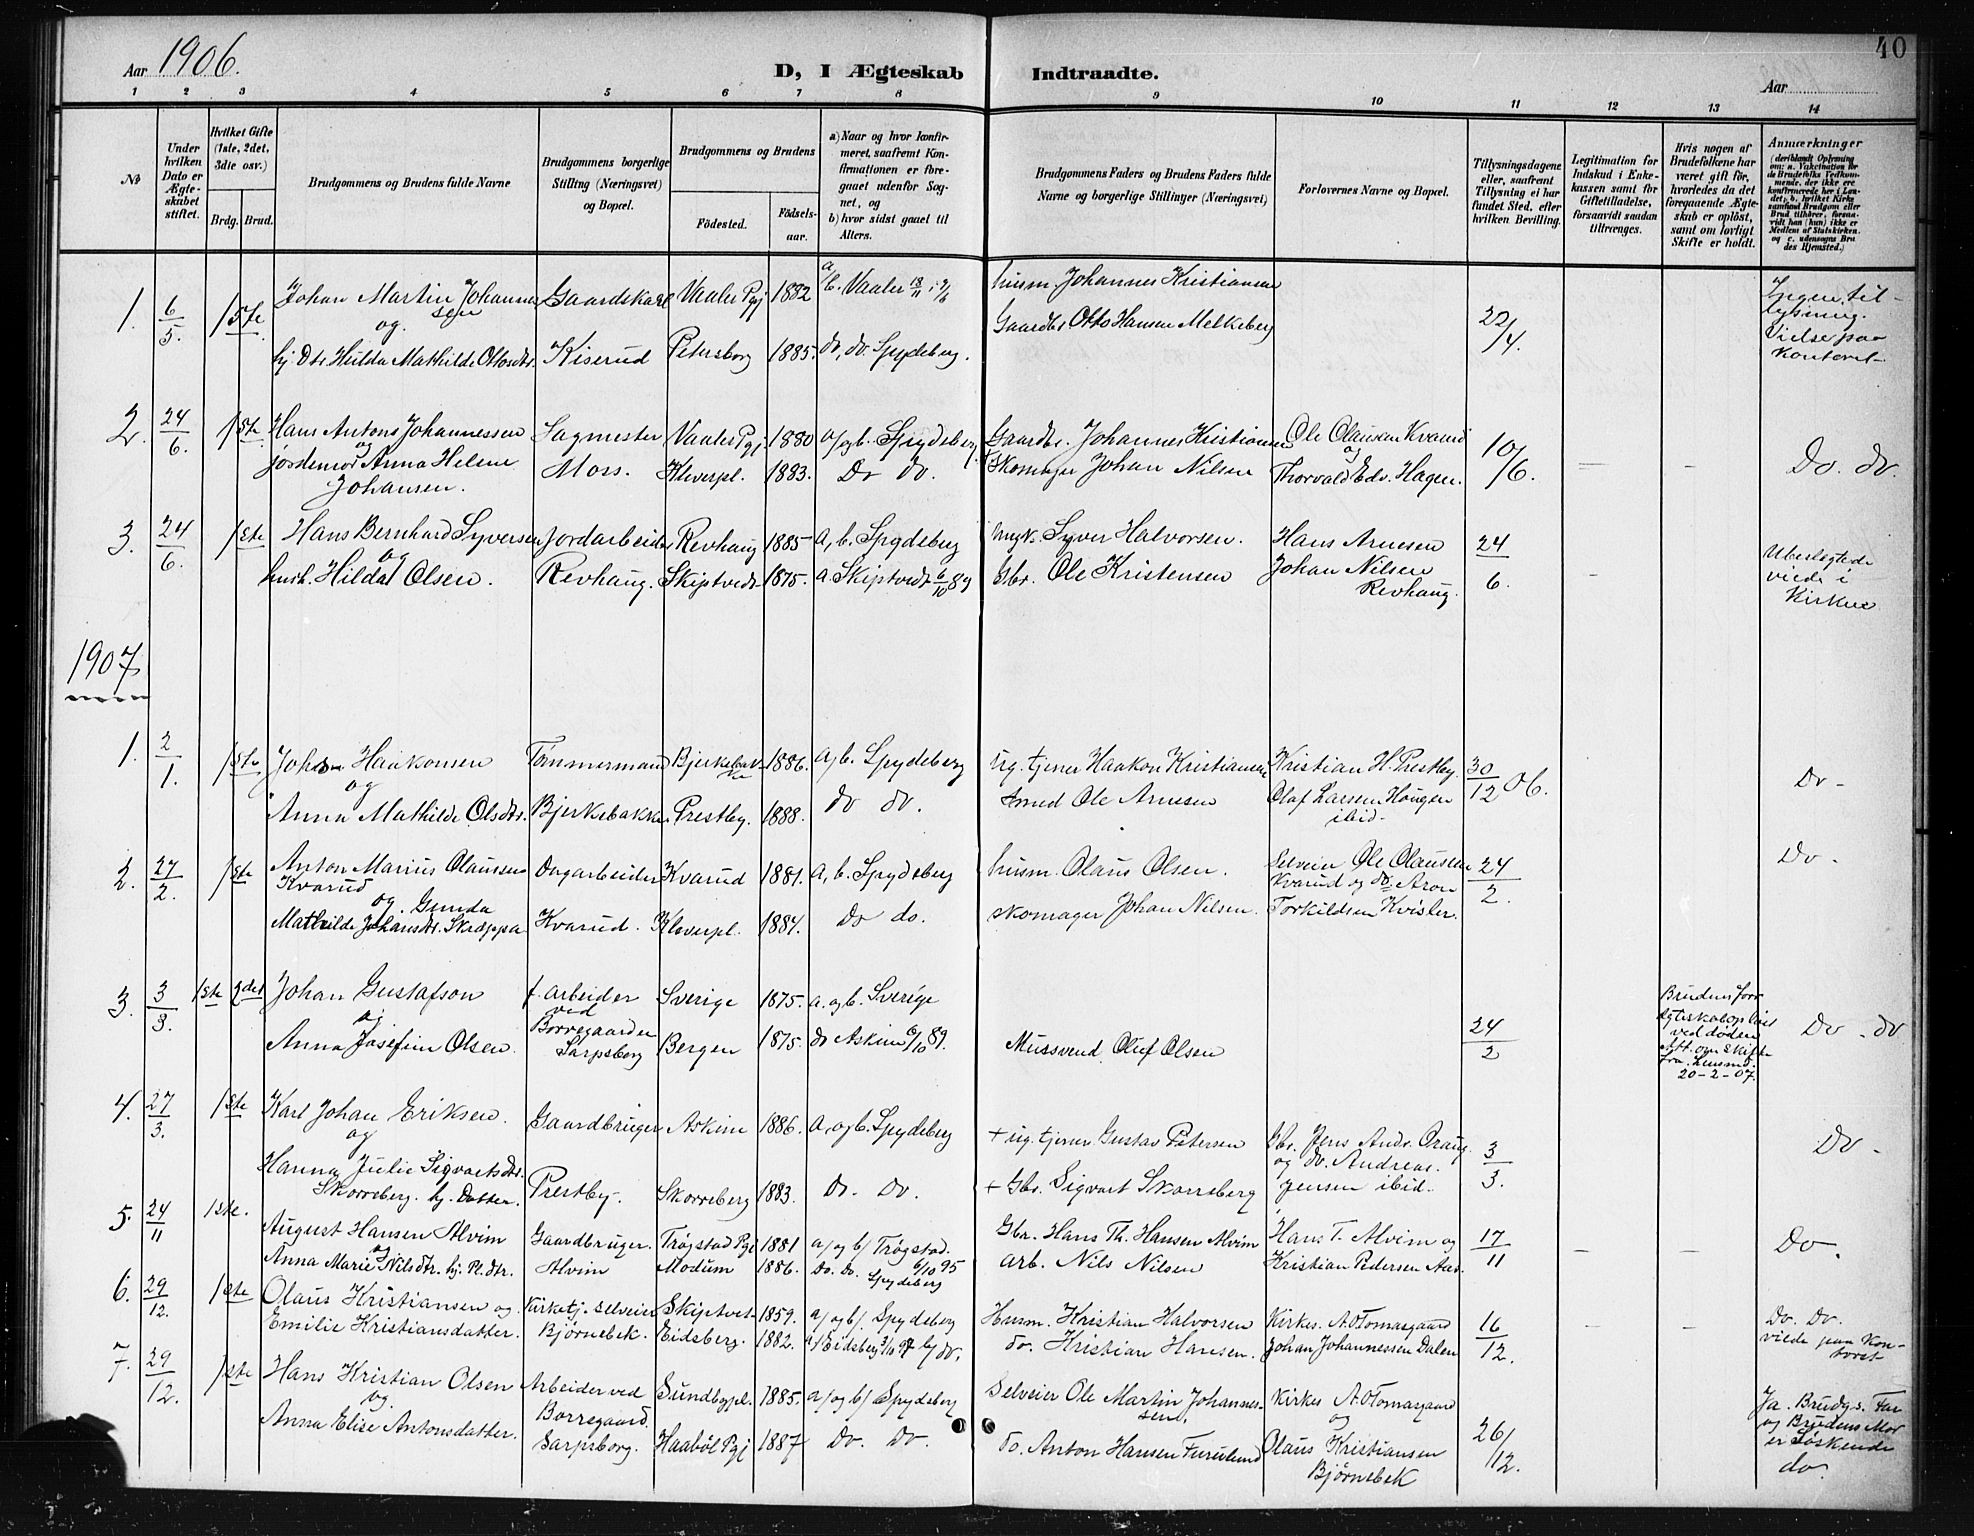 Aar 1906.
D, I Ægteskab Indtraadte.
40
Aar
1 2 3 4 5 6 7 8 9 10 11 12 13 14
№
Under hvilken Dato er Ægteskabet stiftet.
Hvilket Gifte (1ste, 2det, 3die osv.)
Brdg. Brud.
Brudgommens og Brudens fulde Navne
Brudgommens borgerlige Stilling (Næringsvei) og Bopæl.
Brudgommens og Brudens
Födested.
Födselsaar.
a) Naar og hvor konfirmeret, saafremt Konfirmationen er foregaaet udenfor Sognet, og
b) hvor sidst gaaet til Alters.
Brudgommens Faders og Brudens Faders fulde Navne og borgerlige Stillinger (Næringsvei)
Forlovernes Navne og Bopæl.
Tillysningsdagene eller, saafremt Tillysning ei har fundet Sted, efter hvilken Bevilling.
Legitimation for Indskud i Enkekassen samt for Giftetilladelse, forsaavidt saadan tiltrænges.
Hvis nogen af Brudefolkene har været gift før, hvorledes da det foregaaende Ægteskab er oplöst, samt om lovligt Skifte er holdt.
Anmærkninger
1. 6/5. 1ste Johan Martin Johannessen Gaardskarl Vaaler Pgj 1882 a/b. Vaaler husm. Johannes Kristiansen 22/4. Ingen tillysning.
og
hj. Dtr. Hulda Mathilde Ottosdtr. Kiserud Petersborg 1885. do, do. Spydeberg. Gaardbr. Otto Hansen Melkeberg Vielse paa Kontoret
2. 24/6. 1ste Hans Antons Johannessen Sagmester Vaaler Pgj. 1880 a/ogb. Spydeberg Gaardbr. Johannes Kristiansen Ole Olausen Kvarud 10/6. — — Do. do.
og
jordemor Anna Helene Moss. Kleverpl. 1883. Do do. Skomager Johan Nilsen Thorvald Edv. Hagen.
Johansen.
3. 24/6. 1ste Hans Bernhard Syversen Jordarbeider Revhaug 1885 a, b. Spydeberg myk. Syver Halvorsen. Hans Arnesen 24/6. — Ubeslegtede
og
hush. Hilda Olsen. Revhaug. Skiptvedt 1875. a. Skiptvedt 6/10 89 Gbr. Ole Kristensen Johan Nilsen Revhaug. viede i Kirken
1907
1. 2/1. 1ste Johan Haakonsen Tømmermand Bjerkebakke 1886. a, b. Spydeberg ug. tjener Haakon Kristiansen Kristian H. Prestby. 30/12 06. Do -
og
Anna Mathilde Olsdtr. Bjerkebakke Prestby. 1888. do do. Smed Ole Arnesen Olaf Larsen Haugen ibid.
2. 27/2. 1ste Anton Marius Olaussen Dagarbeider Kvarud 1881. a, b. Spydeberg husm. Olaus Olsen. Selveier Ole Olausen 24/2. Do -
Kvarud og Gunda Kvarud og do. Aron
Mathilde Johansdtr. Skræppa Kvarud. Kleverpl. 1884. Do do. skomager Johan Nilsen. Torkildsen Kvisler.
3. 3/3. 1ste 2det Johan Gustafson f. arbeider ved Sverige 1875. a. og b. Sverige 24/2 Brudens forr. Egteskab opløst ved døden Do - do
og
Anna Josefin Olsen. Borregaard Sarpsborg Bergen 1875. do Askim 6/10 89. Mursvend Oluf Olsen Att. om Skifte fra Lensmd. 20-2-07.
4. 27/3. 1ste Karl Johan Eriksen. Gaardbruger Askim 1886. a, ogb. Spydeberg + ug. tjener Gustav Petersen Gbr. Jens Ands. Oraug 3/3. Do -
og og do. Andreas
Hanna Julie Sigvartsdtr. Prestby. Skorreberg 1883. Do. Do. + Gbr. Sigvart Skorreberg Jensen ibid.
Skorreberg. hj. Datter.
5. 24/11 1ste. August Hansen Alvim Gaardbruger. Trøgstad Pgj 1881 a/ og b/ Trøgstad. Gbr. Hans Th. Hansen Alvim Hans T. Alvim og 17/11 — — Do.
og
Anna Marie Nilsdtr. hj. Pl.dtr. Alvim Modum 1886. Do. Do. 6/10 95 Spydeberg arb. Nils Nilsen Kristian Pedersen Aas.
6. 29/12. 1ste Olaus Kristiansen og Kirketj. selveier Skiptvet 1859. a/ og b/ Spydeberg Husm. Kristian Halvorsen Kirkes. A. O Tomasgaard 16/12. — — Do. Do.
Emilie Kristiansdatter. Bjørnebek. Eidsberg. 1882. a/ Eidsberg 3/10 97 b/ do. do. Kristian Hansen. Johan Johannessen Dalen viede paa Kontoret
7. 29/12. 1ste Hans Kristian Olsen Arbeider ved Sundbypl. 1885. a/ og b/ Spydeberg Selveier Ole Martin Johannessen. Kirkes A. O Tomasgaard 26/12. Ja. Brudgs. Far
og Borregaard. og og Brudens Mor
Anna Elise Antonsdatter. Sarpsborg. Haabøl Pgj 1887 Do. Do. do. Anton Hansen Furulund Olaus Kristiansen er Søskende
Bjørnebek do.